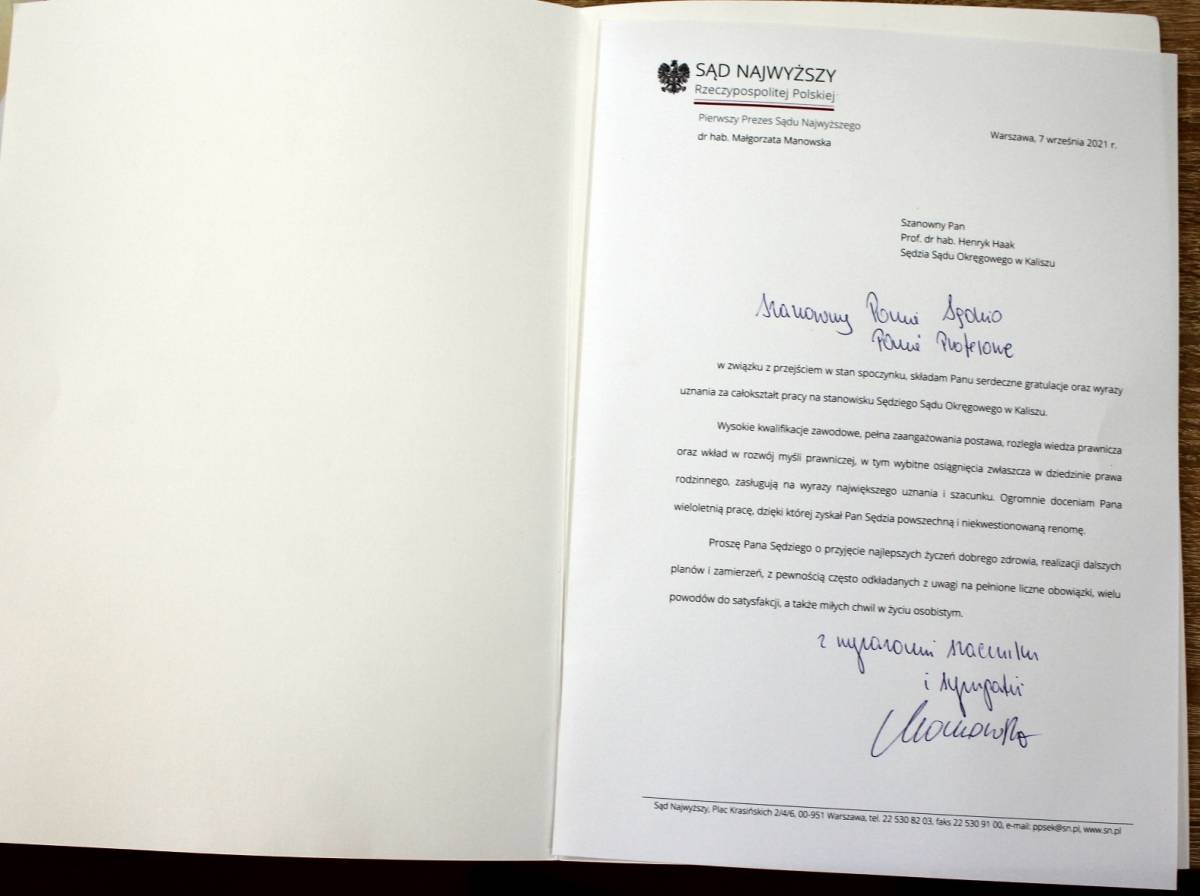 SĄD NAJWYŻSZY
Rzeczypospolitej Polskiej
Pierwszy Prezes Sądu Najwyższego
dr hab. Małgorzata Manowska
Warszawa, 7 września 2021 r.
Szanowny Pan
Prof. dr hab. Henryk Haak
Sędzia Sądu Okręgowego w Kaliszu
Szanowny Panie Sędzio
Panie Profesorze
w związku z przejściem w stan spoczynku, składam Panu serdeczne gratulacje oraz wyrazy
uznania za całokształt pracy na stanowisku Sędziego Sądu Okręgowego w Kaliszu.
Wysokie kwalifikacje zawodowe, pełna zaangażowania postawa, rozległa wiedza prawnicza
oraz wkład w rozwój myśli prawniczej, w tym wybitne osiągnięcia zwłaszcza w dziedzinie prawa
rodzinnego, zasługują na wyrazy największego uznania i szacunku. Ogromnie doceniam Pana
wieloletnią pracę, dzięki której zyskał Pan Sędzia powszechną i niekwestionowaną renomę.
Proszę Pana Sędziego o przyjęcie najlepszych życzeń dobrego zdrowia, realizacji dalszych
planów i zamierzeń, z pewnością często odkładanych z uwagi na pełnione liczne obowiązki, wielu
powodów do satysfakcji, a także miłych chwil w życiu osobistym.
z wyrazami szacunku
i sympatii
Manowska
Sąd Najwyższy, Plac Krasińskich 2/4/6, 00-951 Warszawa, tel. 22 530 82 03, faks 22 530 91 00, e-mail: ppsek@sn.pl, www.sn.pl